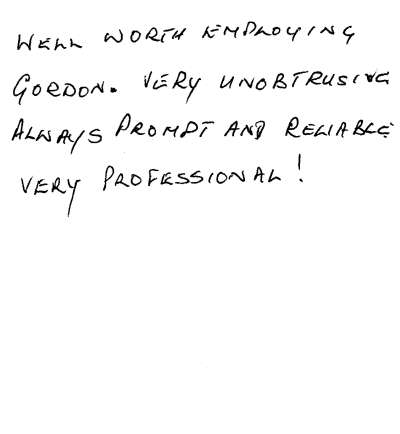 WELL WORTH EMPLOYING
GORDON. VERY UNOBTRUSIVE
ALWAYS PROMPT AND RELIABLE
VERY PROFESSIONAL!